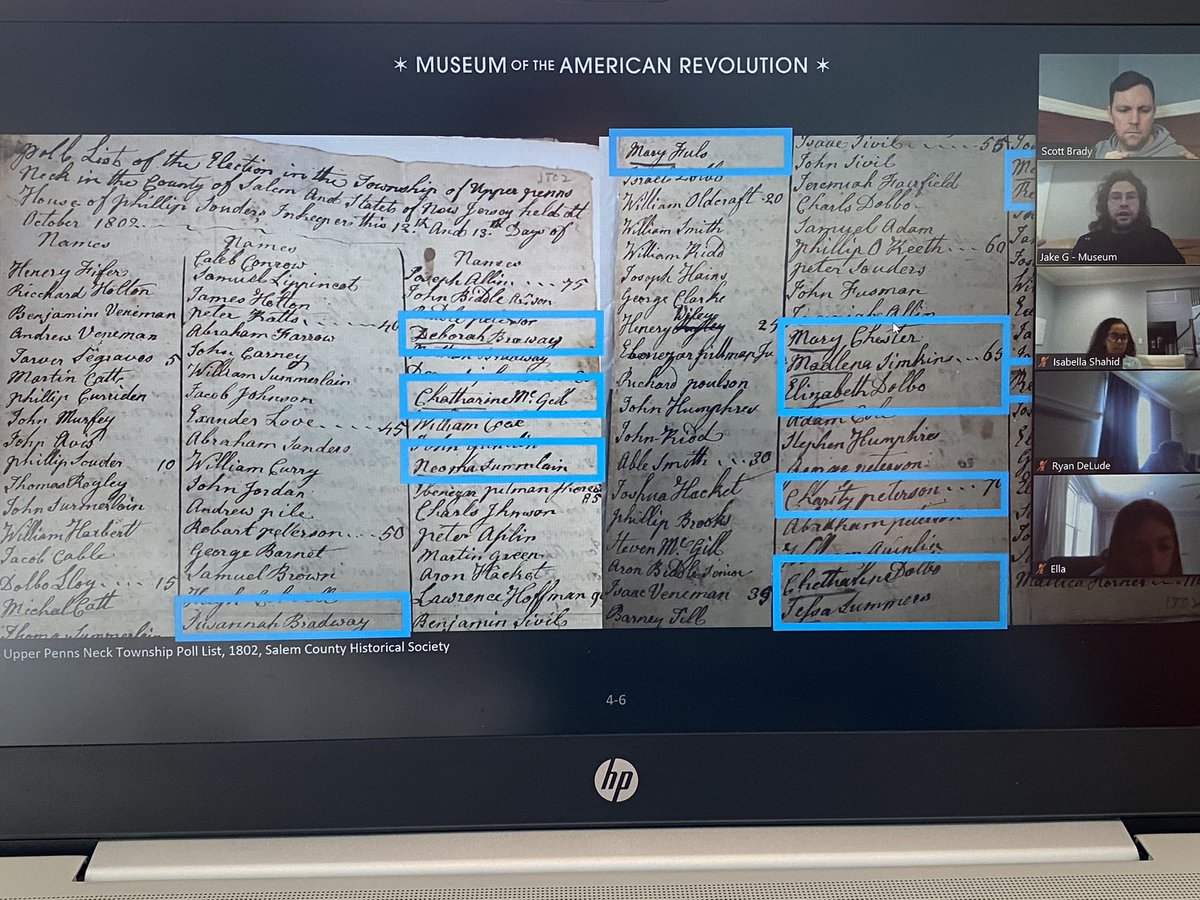 ✶ MUSEUM OF THE AMERICAN REVOLUTION ✶
Poll List of the Election in the Township of Upper penns
Neck in the County of Salem And State of New Jersey held at
House of phillip Souders Inkeeper this 12th And 13th Days of
October 1802
1802
Names
Henery Fifer
Ricchard Holton
Benjamin Veneman
Andrew Veneman
Tarver Segraves 5
Martin Catt
phillip Curriden
John Murfey
John Avis
phillip Souder 10
Thomas Ragley
John Summerlain
William Harbert
Jacob Cable
Dolbo Sloy .... 15
Mechal Catt
Names
Caleb Conrow
Samuel Lippincot
James Holton
peter 40
Abraham Farrow
John Carney
William Summerlain
Jacob Johnson
Exander Love ---- 45
Abraham Sanders
William Curry
John Jordan
Andrew pile
Robart peterson --- 50
George Barnet
Samuel Brown
Susannah Bradway
Names
Joseph Allin --- 75
John Biddle
Deborah Braway
Chatharine Mc Gill
William Cox
Neoma Summlain
Ebenezar pitman
85
Charls Jhnson
peter Aplin
Martin Green
Aron Hacket
Lawrence Hoffman
Benjamin Sivil
Mary Fuls
Israel Dolbo
William Oldcraft - 20
William Smith
William Kidd
Joseph Hains
George Clarke
Henery Wifley 25
Ebenezar pittman Ju
Richard poulson
John Humphres
John Kidd
Able Smith ... 30
Joshua Hacket
phillip Brooks
Steven Mc Gill
Aron Biddle Senior
Isaac Veneman 35
Barney Till
Isaac Sivil --- 55
John Sivil
Jeremiah Fairfield
Charls Dolbo
Samuel Adam
phillip O Keeth --- 60
peter Souders
John Fusman
Mary Chester
Madlena Simkins --- 65
Elizabeth Dolbo
Adam
Stephen Humphries
peterson
Charity peterson --- 70
Abraham peterson
William Quinlin
Chatharine Dolbo
Tefsa Summers
Scott Brady
Jake G - Museum
Isabella Shahid
Ryan DeLude
Ella
Upper Penns Neck Township Poll List, 1802, Salem County Historical Society
4-6
hp